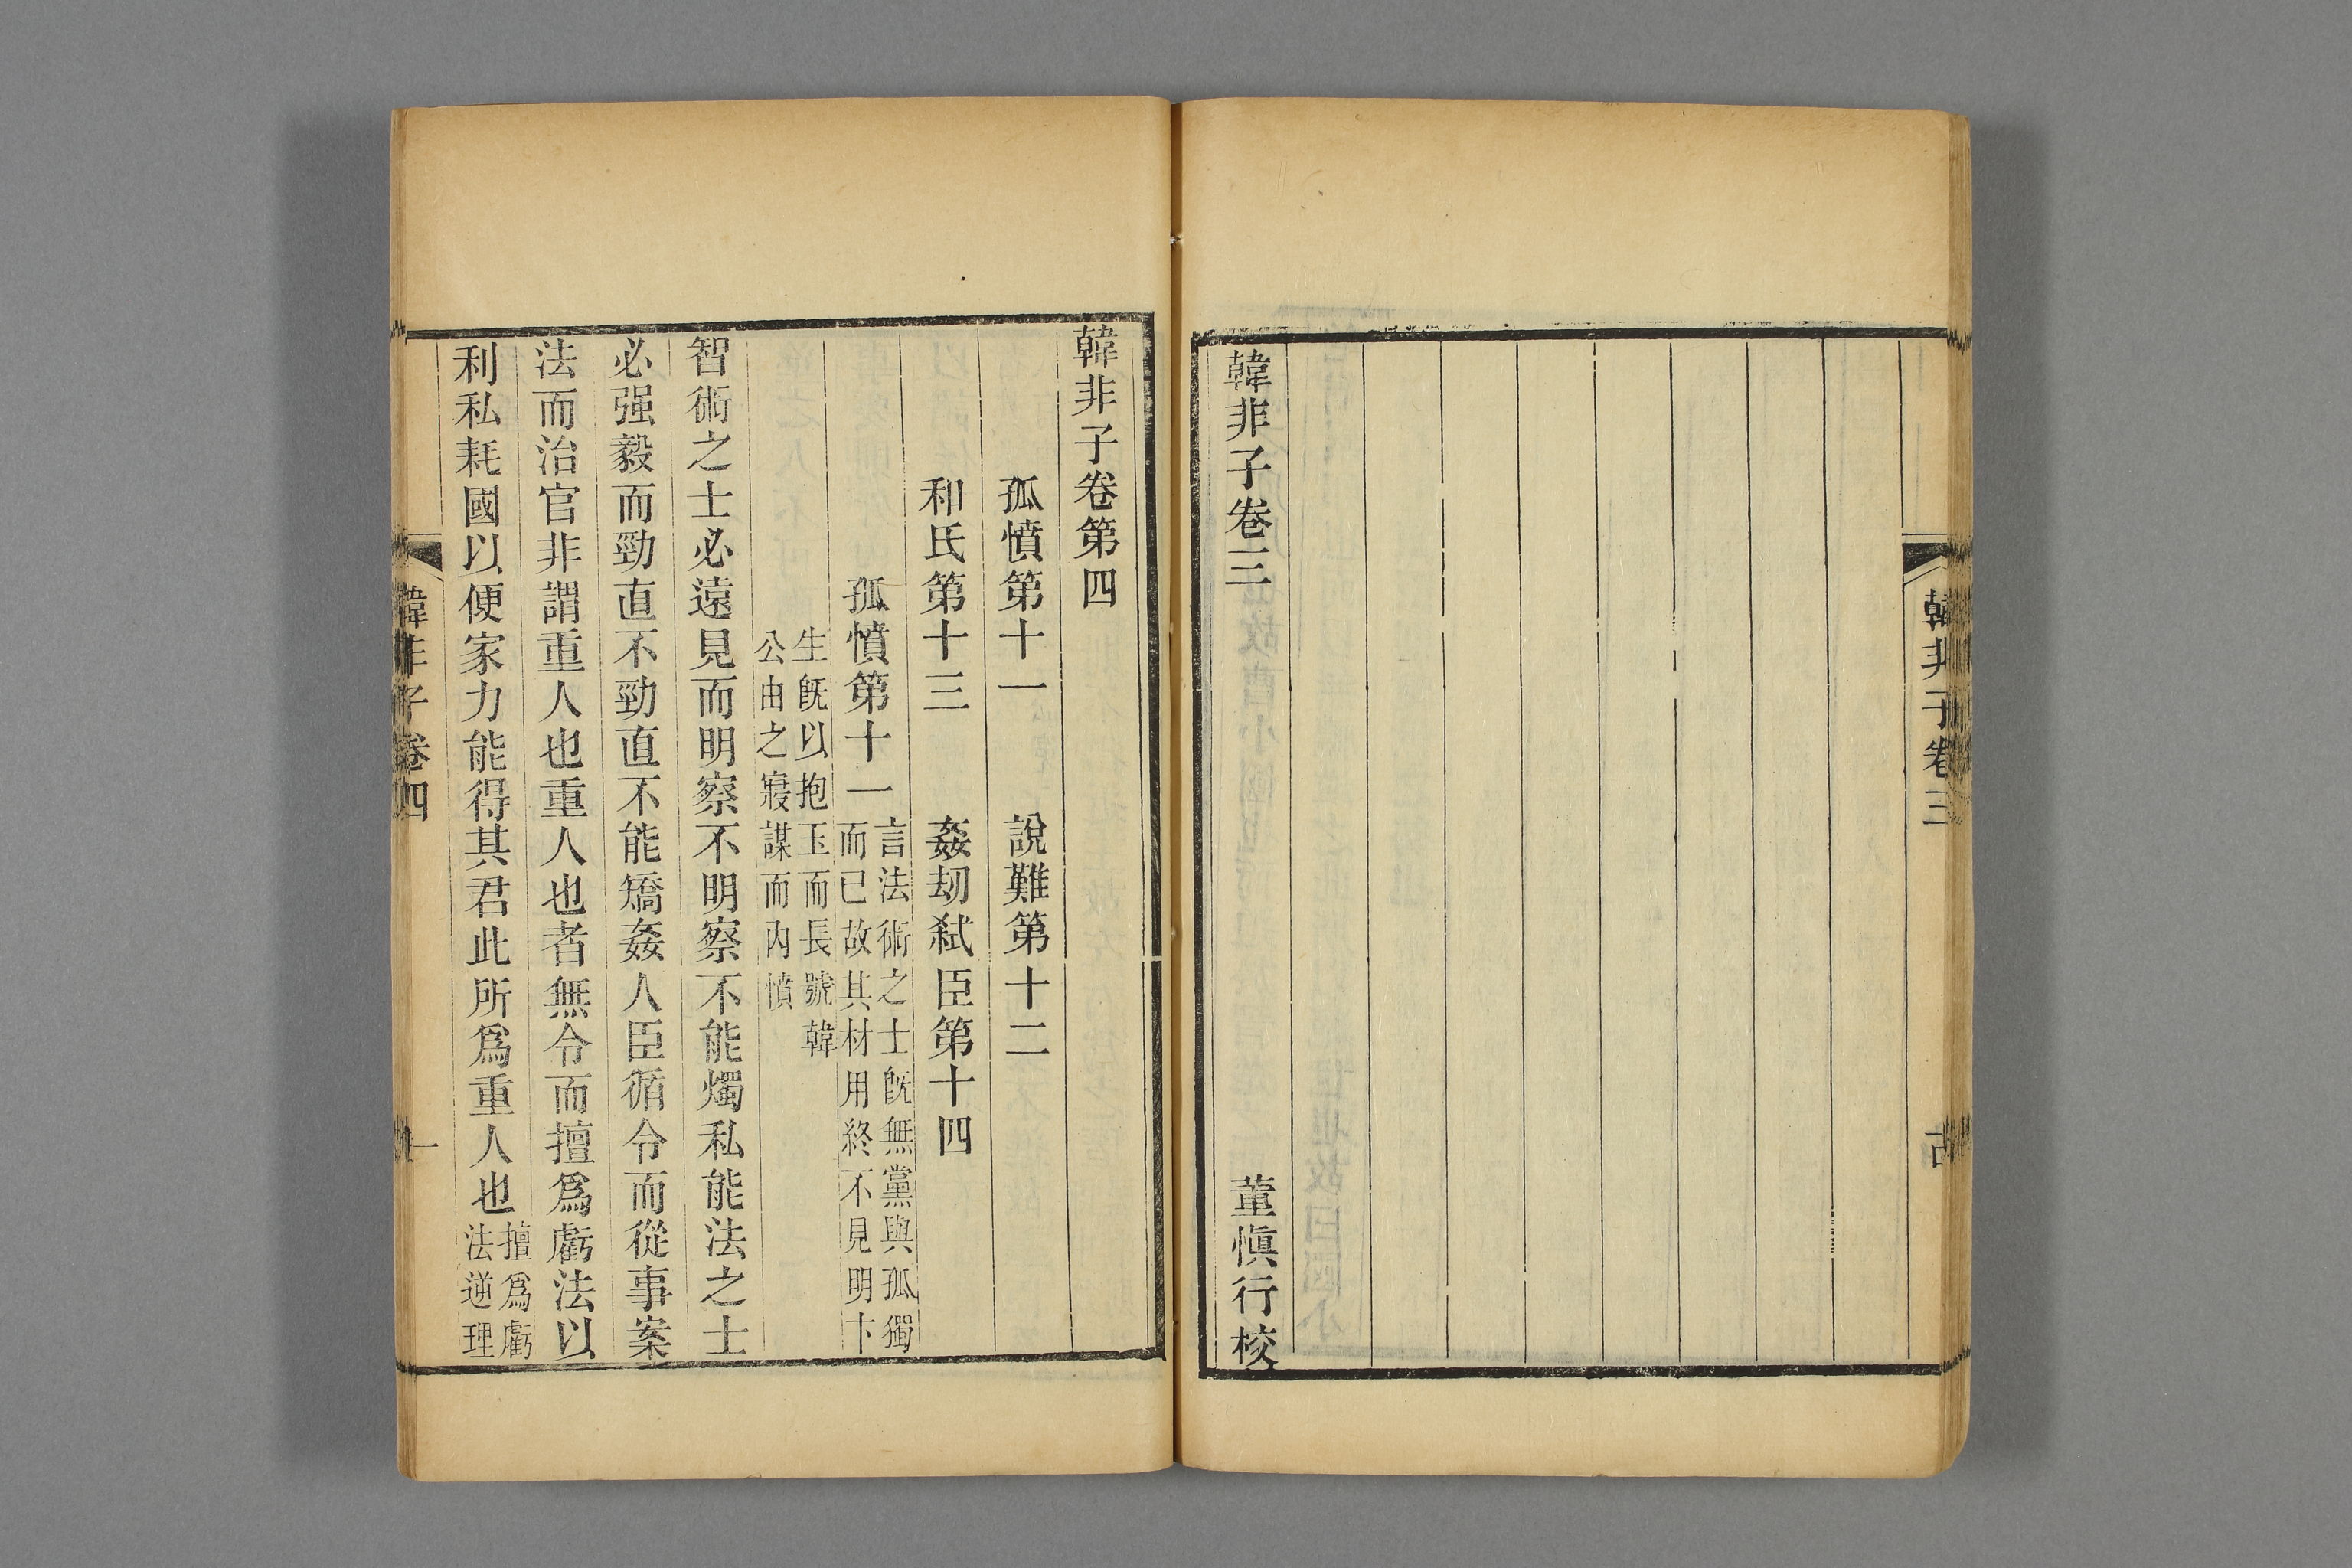 韓非子卷三
古
韓非子卷三 董愼行校
韓非子卷第四
孤憤第十一 說難第十二
和氏第十三 姦刼弑臣第十四
孤憤第十一 言法術之士旣無黨與孤獨
而已故其材用終不見明卞
生旣以抱玉而長號韓
公由之寢謀而內憤
智術之士必遠見而明察不明察不能燭私能法之士
必强毅而勁直不勁直不能矯姦人臣循令而從事案
法而治官非謂重人也重人也者無令而擅爲虧法以
利私耗國以便家力能得其君此所爲重人也 擅爲虧
法逆理
韓非子卷四
一